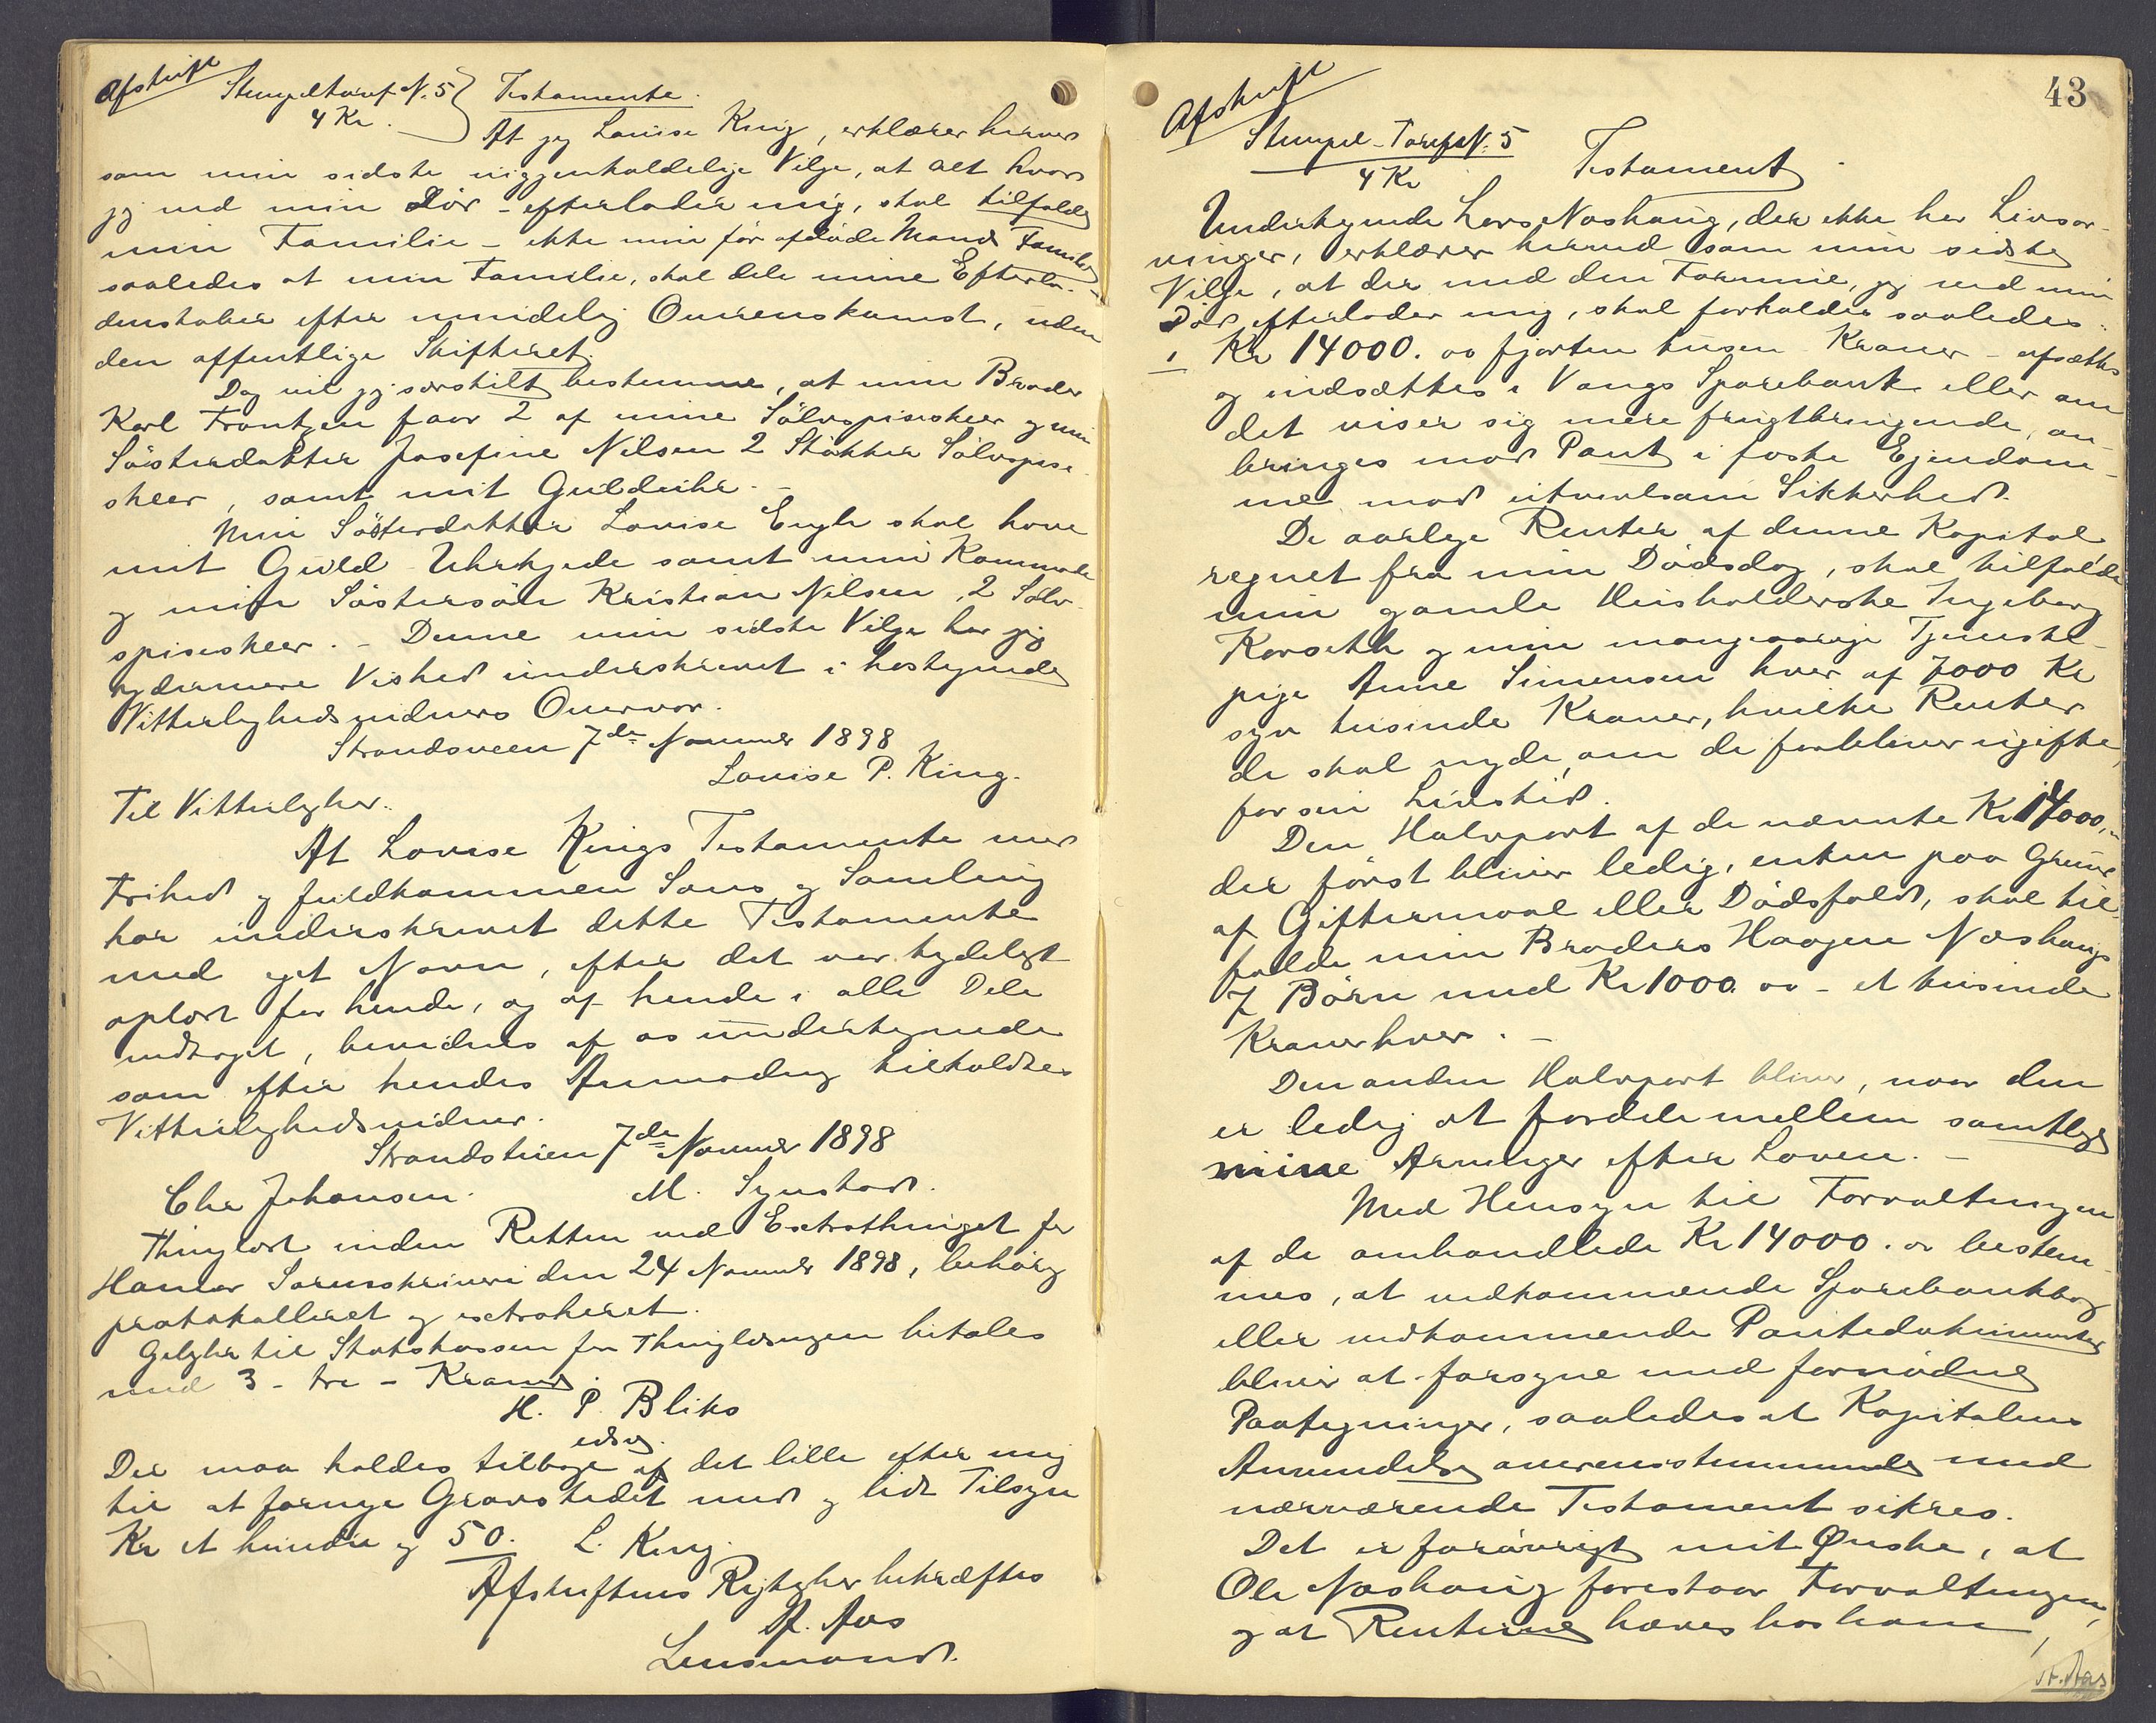 Afskrift
Stempeltarif N. 5 Testamente.
4 Kr.
At jeg Louise King, erklærer herved
som min sidste uiggenkaldelige Vilge, at alt hvad
jeg ved min Död - efterlader mig, skal tilfalde
min Familie - ikke min för afdöde Mands Familie
saaledes at min Familie, skal dele mine Efterla-
denskaber efter mindelig Overenskomst, uden
den offentlige Skifteret.
Dog vil jeg særskilt bestemme, at min Broder
Karl Frantzen faar 2 af mine Sölvspiseskeer og min
Sösterdatter Josefine Nilsen 2 Stökker Sölvspise
skeer, samt mit Guldeuhr. -
Min Sösterdatter Louise Engh skal have
mit Guld Uhrkjede samt min Kommode
og min Söstersön Kristian Nilsen, 2 Sölv-
spiseskeer. - Denne min sidste Vilge har jeg
ydermere Vished underskrevet i hostegnede
Vitterlighedsvidners Overvær.
Strandsveen 7de November 1898
Louise P. King.
Til Vitterlighed.
At Lovise Kings Testamente med
Frihed og fuldkommen Sans og Samling
har underskrevet dette Testamente
med eget Navn, efter det var tydeligt
oplæst for hende, og af hende i alle Dele
vedtaget, bevidnes af os undertegnede
som efter hendes Anmodning tilkaldtes
Vitterlighedsvidner.
Strandstuen 7de November 1898
Chr Johansen. M. Synstad.
Thinglæst inden Retten ved Extrathinget for
Hamar Sorenskriveri den 24 November 1898, behörig
protokolleret og extraheret.
Gebyhr til Statskassen for Thinglæsningen betales
med 3 - tre - Kroner.
H. P. Bliks
edsv.
Der maa holdes tilbage af det lille efter mig
til at fornye Gravstedet med og lidt Tilsyn
Kr et hundre og 50. L. King.
Afskriftens Rigtighed bekræftes
A. Aas
Lensmand.
43
Afskrift
Stempel-Tarif N. 5 Testament
4 Kr
Undertegnede Lars Næshaug, der ikke har Livsar-
vinger, erklærer herved som min sidste
Vilge, at der med den Formue, jeg ved min
Död efterlader mig, skal forholdes saaledes:
1 Kr 14000. oo fjorten tusen Kroner - afsættes
og indsættes i Vangs Sparebank eller om
det viser sig mere frugtbringende, an-
bringes mod Pant i faste Ejendom-
me mod utvivlsom Sikkerhed.
De aarlige Renter af denne Kapital
regnet fra min Dödsdag, skal tilfalde
min gamle Husholderske Ingeborg
Korseth og min mangeaarige Tjeneste-
pige Anne Simensen hver af 7000 Kr
syv tusinde Kroner, hvilke Renter
de skal nyde, om de forbliver ugifte,
for sin Livstid.
Den Halvpart af de nævnte Kr 14000,
der först bliver ledig, enten paa Grund
af Giftermaal eller Dödsfald, skal til
falde min Broders Haagen Næshaugs
7 Börn med Kr 1000. oo - et tusinde
Kroner hver. -
Den anden Halvpart bliver, naar den
er ledig at fordele mellem samtlige
mine Arvinger efter Loven. -
Med Hensyn til Forvaltningen
af de omhandlede Kr 14000. oo bestem-
mes, at vedkommende Sparebankbog
eller vedkommende Pantedokumenter
bliver at forsyne med fornödne
Paategninger, saaledes at Kapitalens
Anvendelse overensstemmende med
nærværende Testament sikres.
Det er forövrigt mit Ønske, at
Ole Næshaug forestaar Forvaltningen,
og at Renterne hæves hos ham,
A. Aas